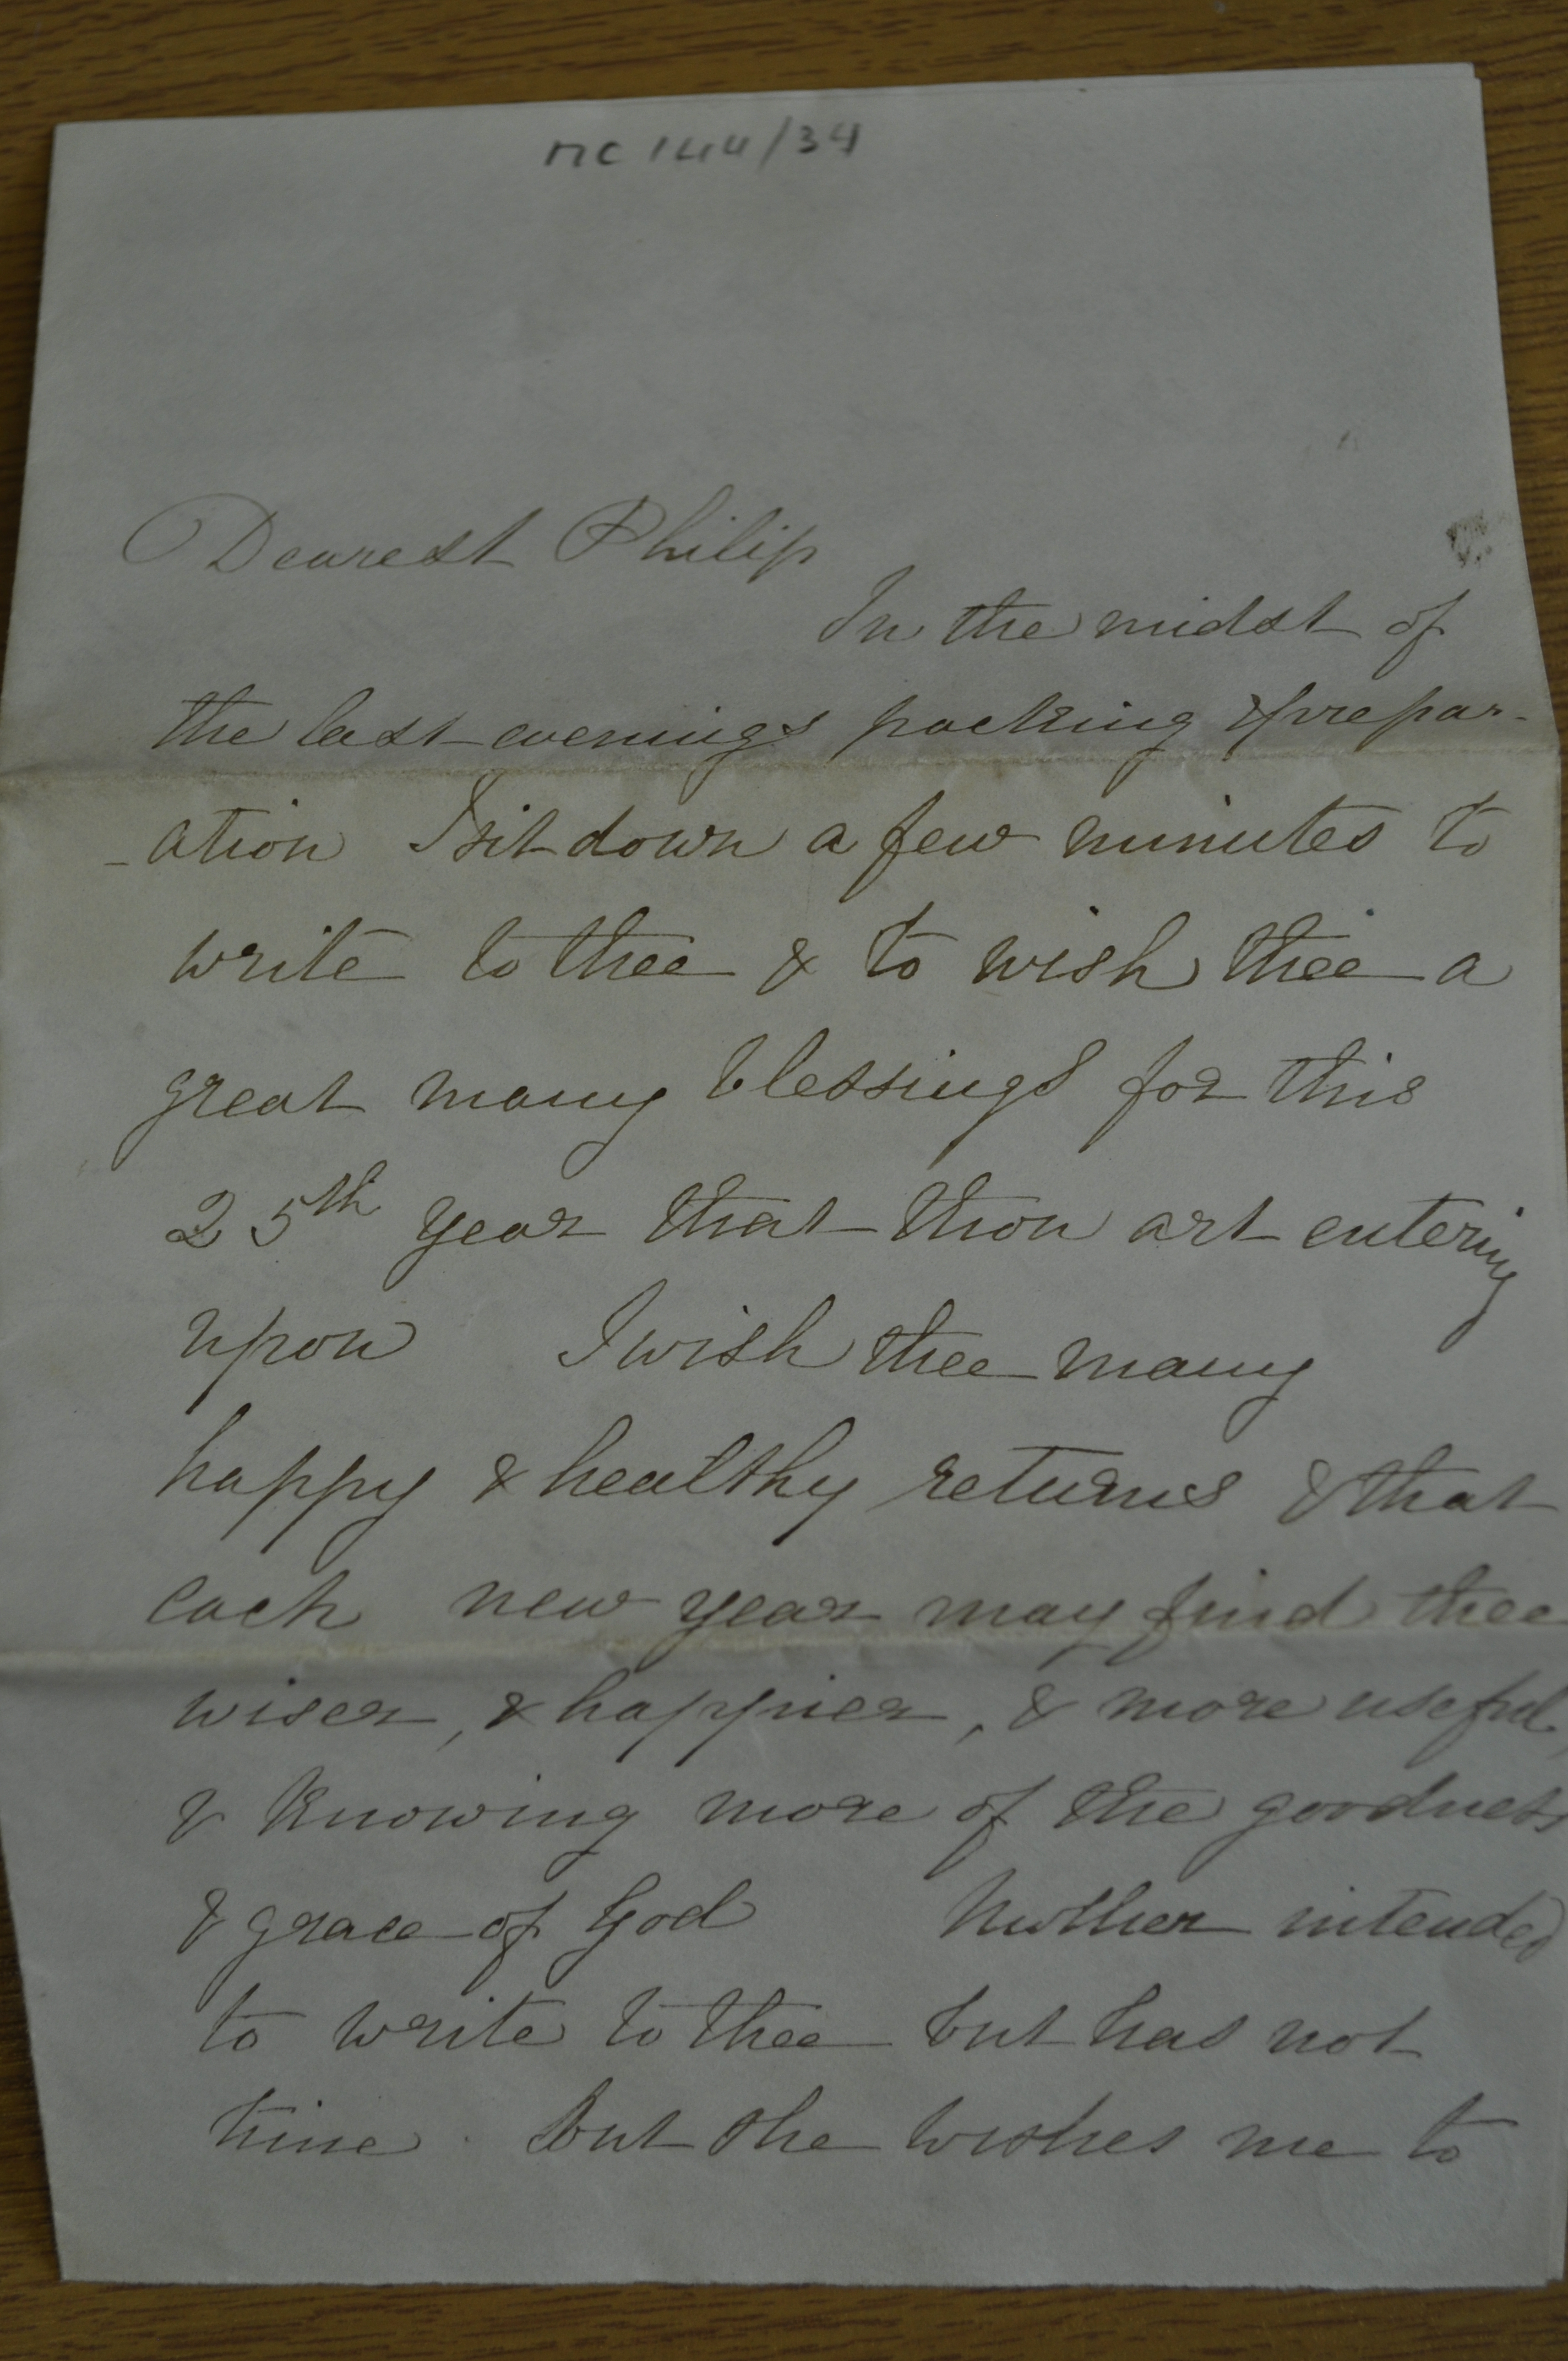 MC 144/34
Dearest Philip
In the midst of
the last evenings packing & prepar-
-ation I sit down a few minutes to
write to thee & to wish thee a
great many blessings for this
25th year that thou art entering
upon I wish thee many
happy & healthy returns & that
each new year may find thee
wiser, & happier, & more useful,
& knowing more of the goodness
& grace of God Mother intended
to write to thee but has not
time but she wishes me to